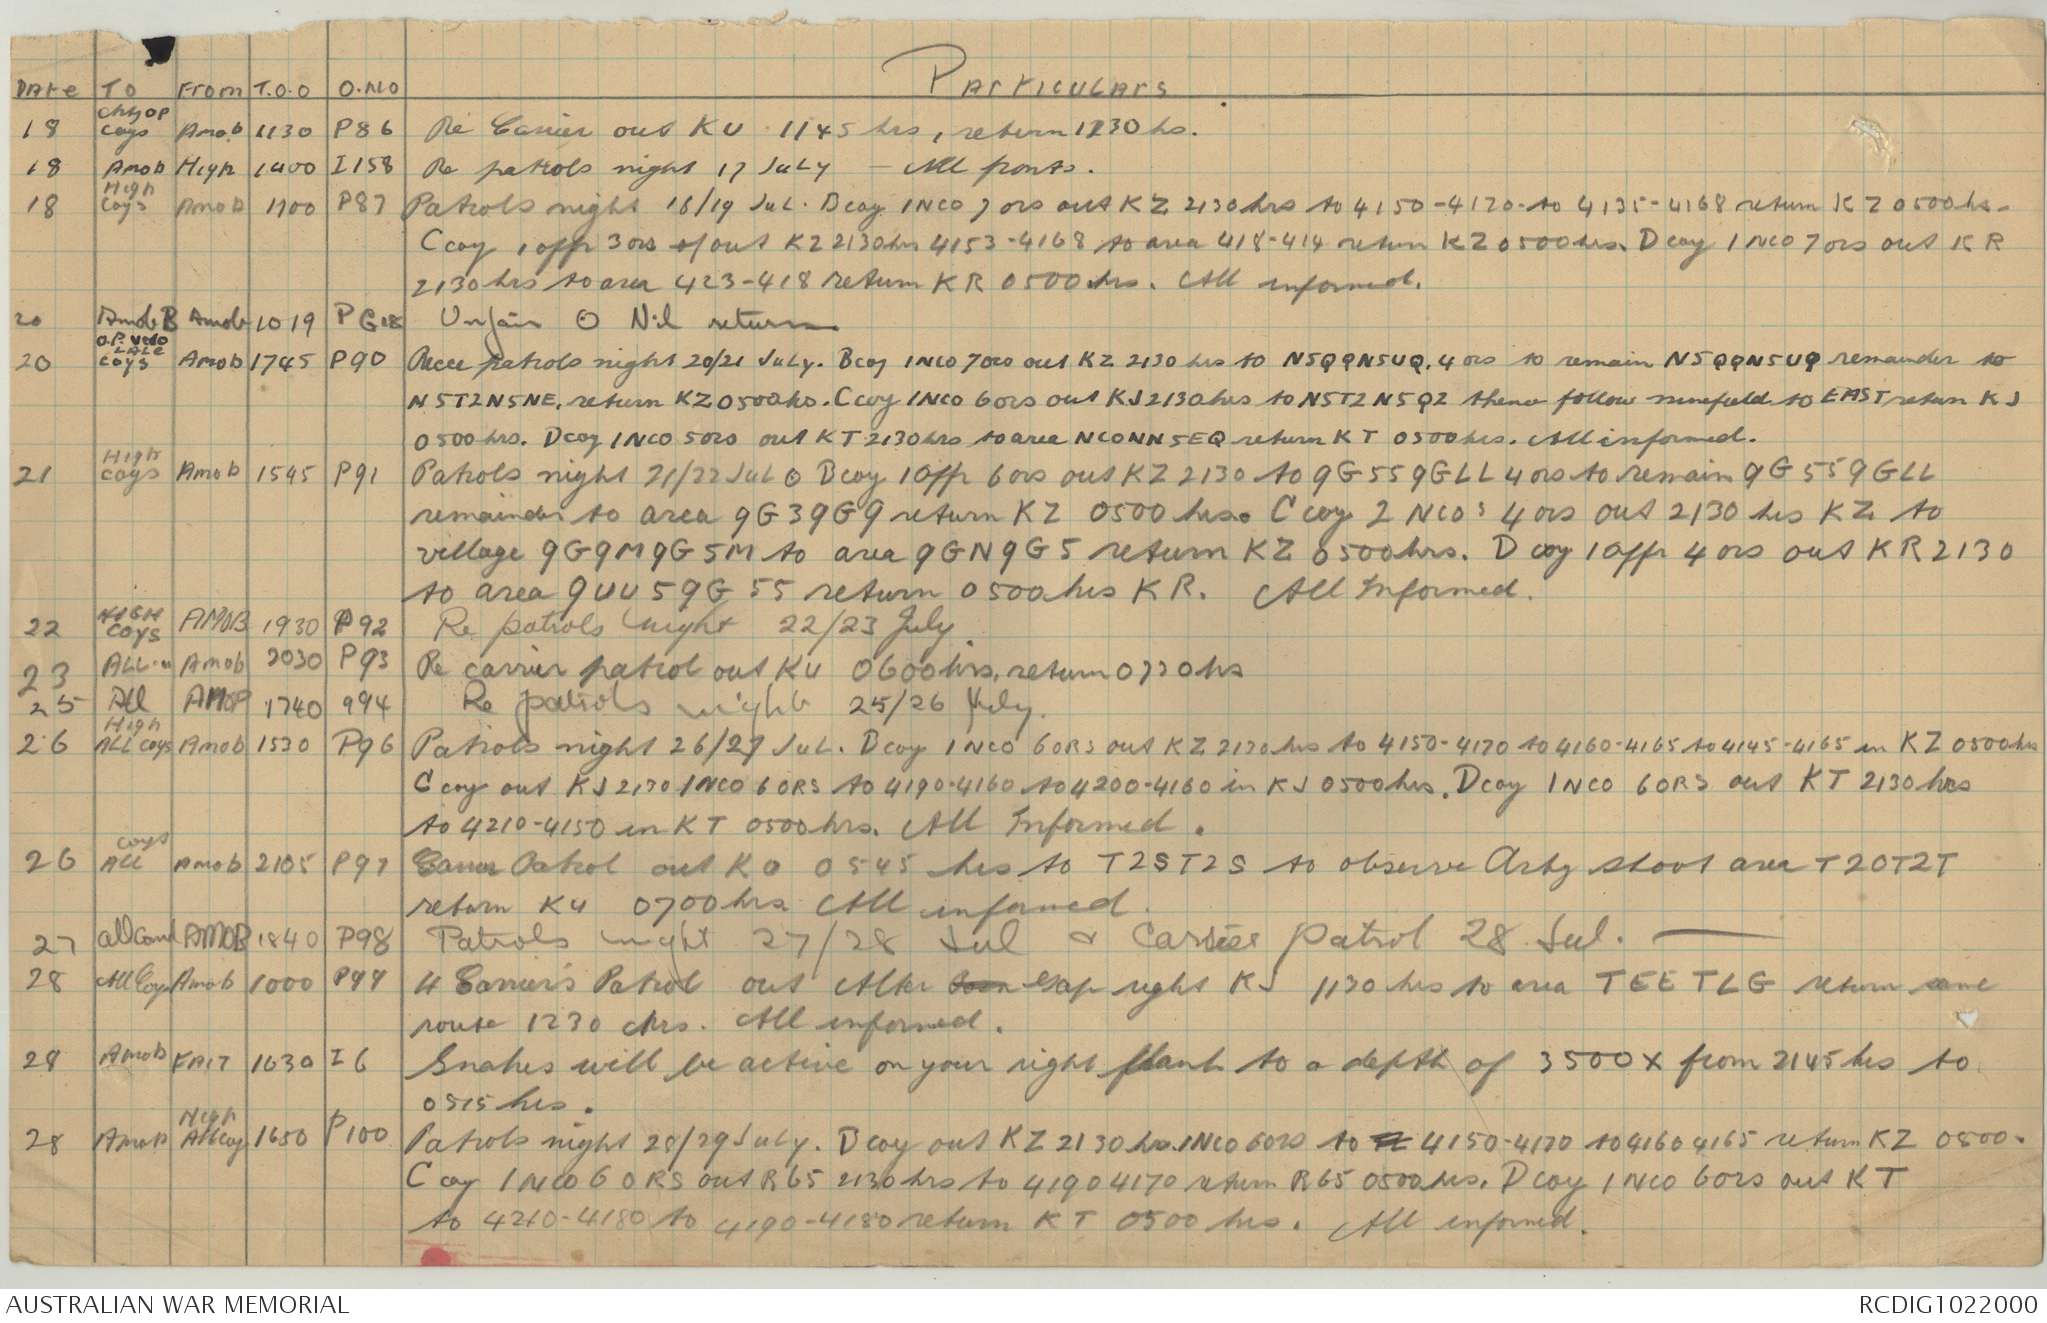 DATE TO From T.O.O O.NO Particulars
18 coys Amob 1130 P86 Re Carrier out KU 1145 hrs, return 1230 hs.
18 Amob High 1400 I158 Re patrols night 17 July — All fronts.
High
18 coys Amob 1700 P87 Patrols night 18/19 Jul. Bcoy 1NCO 7 ors out KZ 2130hrs to 4150-4170 to 4135-4168 return KZ 0500hs.
Ccoy 1 offr 3ors out KZ 2130hrs 4153-4168 to area 418-414 return KZ 0500hrs. Dcoy 1 NCO 7ors out KR
2130 hrs to area 423-418 return KR 0500 hrs. All informed.
20 AmobB Amob 1019 Unfair Nil return
O.P.
20 coys Amob 1745 P90 Recce patrols night 20/21 July. Bcoy 1NCO 7ors out KZ 2130 hrs to N5QQN5UQ. 4 ors to remain N5QQN5UQ remainder to
N5T2N5NE, return KZ 0500hrs. Ccoy 1NCO 6ors out KJ 2130hrs to N5T2N5Q2 thence follow minefield to EAST return KJ
0500 hrs. Dcoy 1NCO 5ors out KT 2130hrs to area NCONN5EQ return KT 0500hrs. All informed.
High
21 coys Amob 1545 P91 Patrols night 21/22 Jul Bcoy 1offr 6ors out KZ 2130 to 9G559GLL 4 ors to remain 9G559GLL
remainder to area 9G39G9 return KZ 0500 hrs. Ccoy 2 NCOs 4 ors out 2130 hrs KZ to
village 9G9M9G5M to area 9GN9G5 return KZ 0500hrs. D coy 1offr 4 ors out KR 2130
to area 9UU59G55 return 0500hrs KR. All Informed.
HIGH
22 coys AMOB 1930 P92 Re patrols night 22/23 July.
23 ALL Amob 2030 P93 Re carrier patrol out KU 0600hrs, return 0730hs
25 All AMOP 1740 994 Re patrols night 25/26 July.
High
26 ALL coys Amob 1530 P96 Patrols night 26/27 Jul. Bcoy 1NCO 6ORS out KZ 2130hrs to 4150-4170 to 4160-4165 to 4145-4165 in KZ 0500hrs
Ccoy out KJ 2130 1NCO 6ORS to 4190-4160 to 4200-4160 in KJ 0500hrs. Dcoy 1NCO 6ORS out KT 2130 hrs
to 4210-4150 in KT 0500hrs. All Informed.
coys
26 ALL Amob 2105 P97 Carrier Patrol out KO 0545 hrs to T2ST2S to observe Arty shoot area T2OT2T
return KU 0700hrs All informed.
27 AMOB 1840 P98 Patrols night 27/28 Jul & Carrier patrol 28 Jul. —
28 All Coys Amob 1000 P99 4 Carriers Patrol out Alter Gap right KJ 1130 hrs to area TEETLG return same
route 1230 hrs. All informed.
28 Amob FAIT 1630 I6 Snakes will be active on your right flank to a depth of 3500x from 2145hrs to
0515 hrs.
High
28 Amob Allcoy 1650 P100 Patrols night 28/29 July. Bcoy out KZ 2130hs. 1NCO 6ors to 4150-4170 to 4160 4165 return KZ 0500.
C coy 1NCO 6 ORS out R65 2130hrs to 4190 4170 return R65 0500hrs. Dcoy 1NCO 6ors out KT
to 4210-4180 to 4190-4180 return KT 0500 hrs. All informed.
AUSTRALIAN WAR MEMORIAL RCDIG1022000